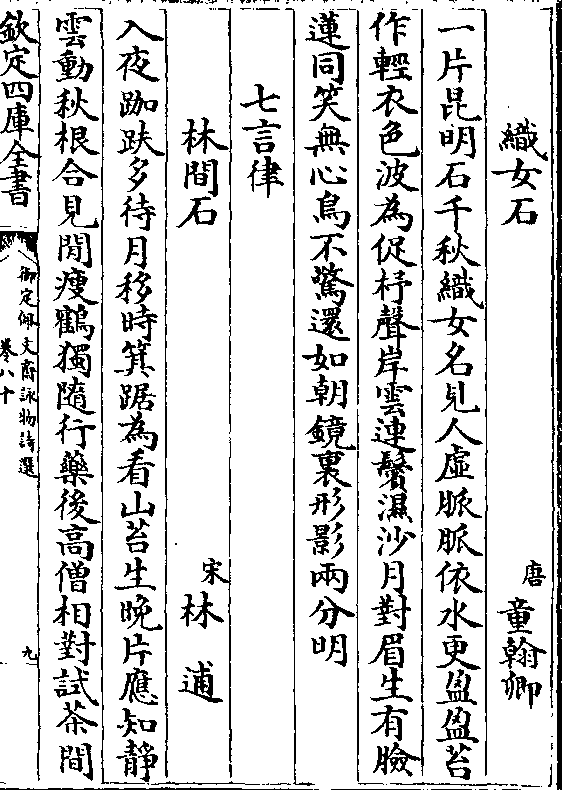 織女石 唐 童翰卿
一片昆明石千秋織女名見人虛脈脈依水更盈盈苔
作輕衣色波為促杼聲岸雲連鬢濕沙月對眉生有臉
蓮同笑無心鳥不驚還如朝鏡裏形影兩分明
七言律
林間石 宋 林逋
入夜跏趺多待月移時箕踞為看山苔生晚片應知靜
雲動秋根合見閒瘦鶴獨隨行藥後高僧相對試茶間
欽定四庫全書
御定佩文齋詠物詩選
卷八十
九